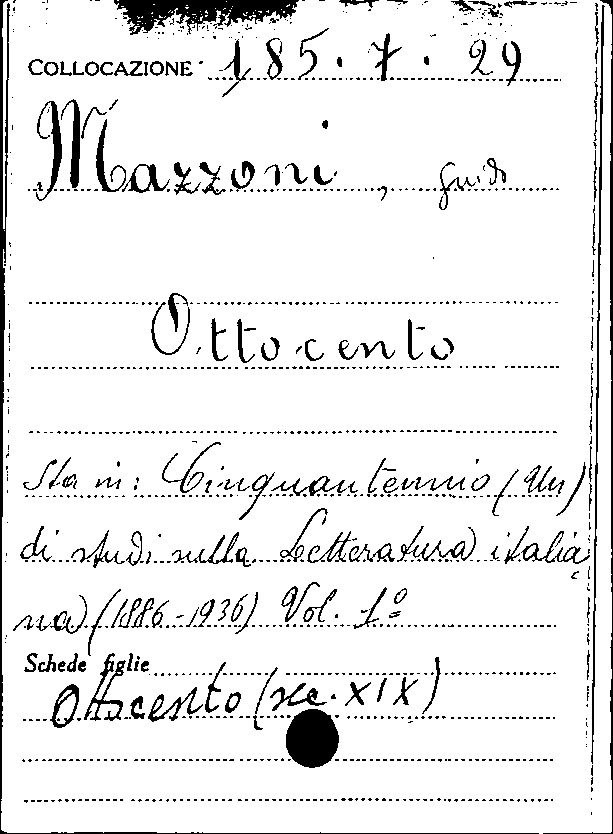 COLLOCAZIONE 185.7.29
Mazzoni, Guido
Ottocento
Sta in: Cinquantennio (Un)
di studi sulla Letteratura italia
na (1886-1936) Vol. 1º
Schede figlie
Ottocento (sec. XIX)